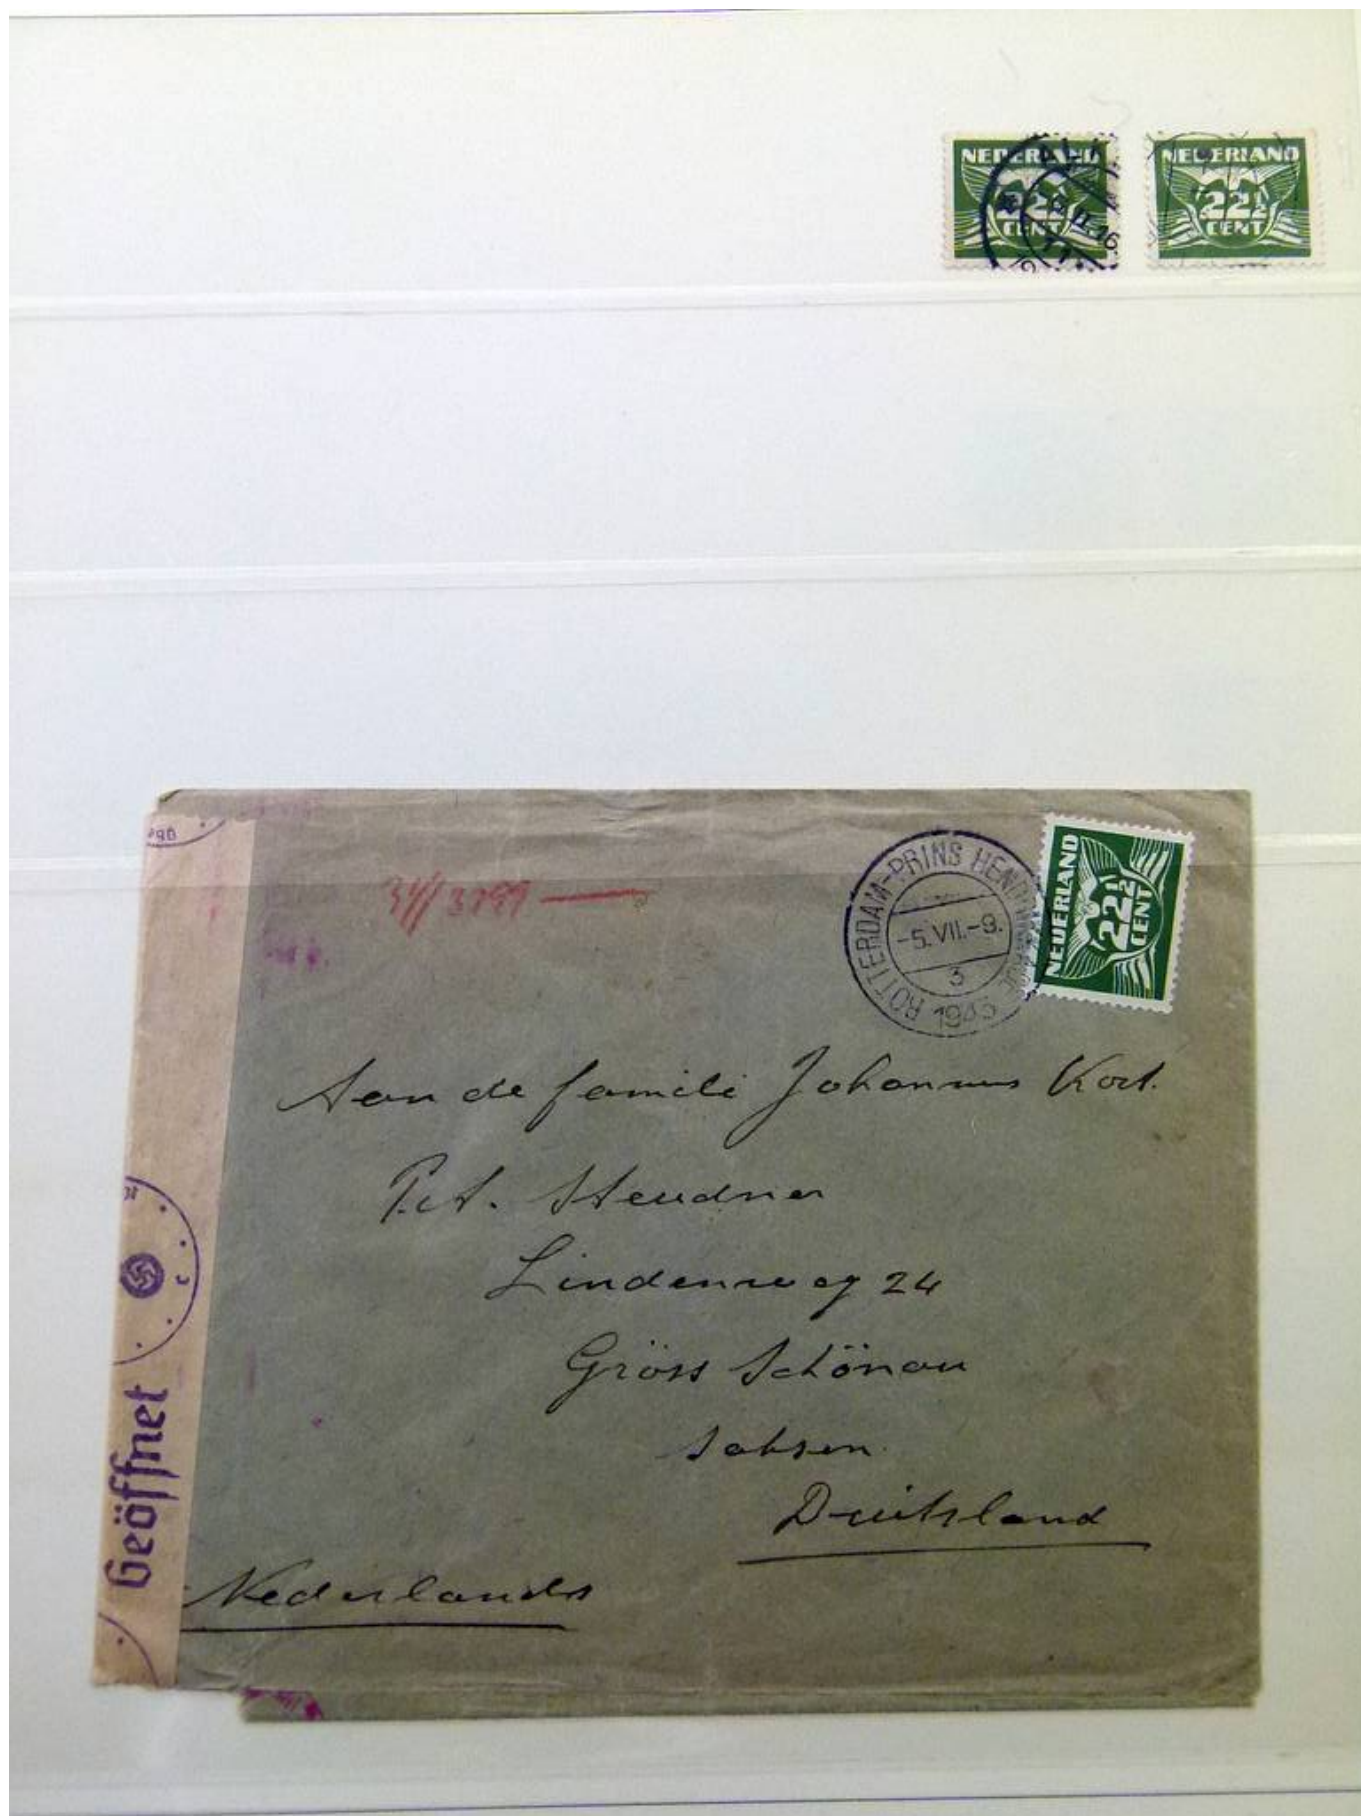 NEDERLAND
22½
CENT
NEDERLAND
22½
CENT
ROTTERDAM-PRINS
-5.VII.-9.
3
1943
NEDERLAND
22½
CENT
Aan de famile Johannus Kort.
Steudner
Lindenweg 24
Gröss Schönau
Saksen
Duitsland
Nederlands
Geöffnet
e